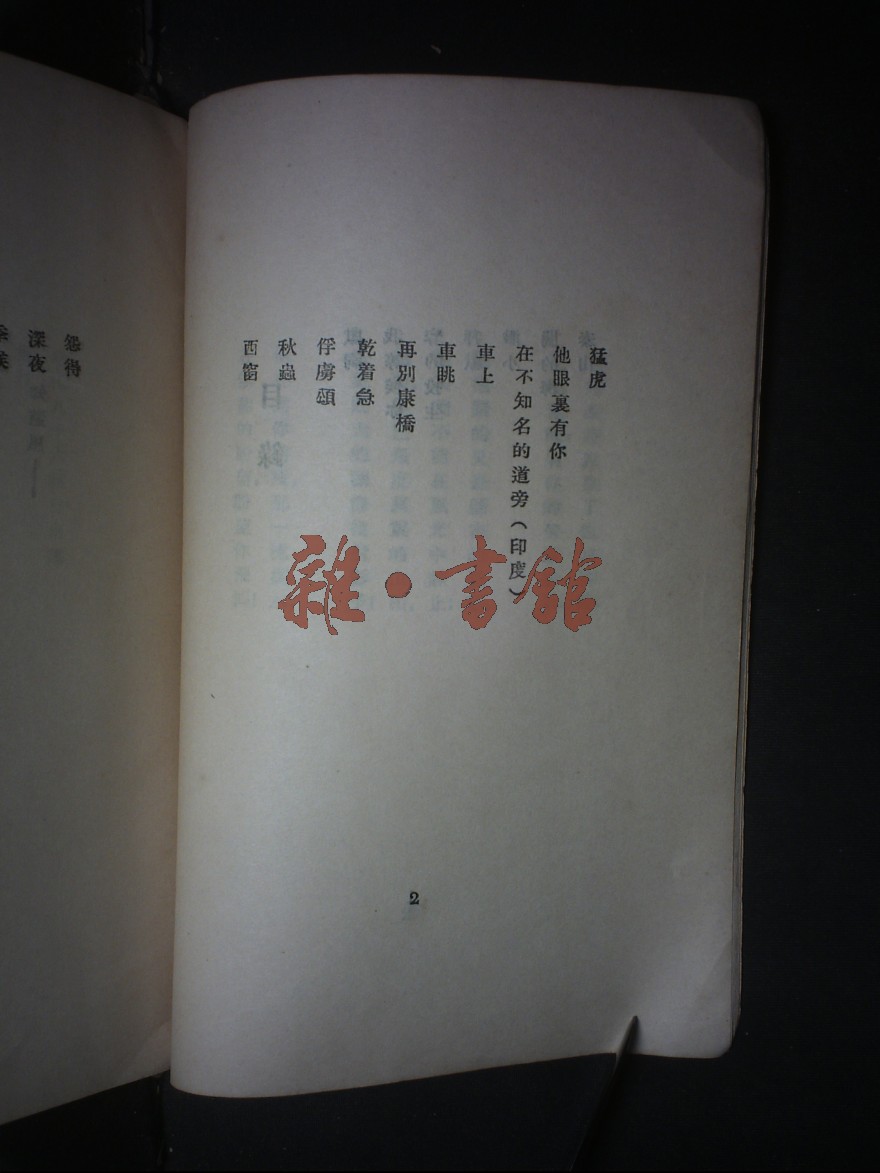 猛虎
他眼裏有你
在不知名的道旁(印度)
車上
車眺
再別康橋
乾着急
俘虜頌
秋蟲
西窗
2
怨得
深夜
雜·書館